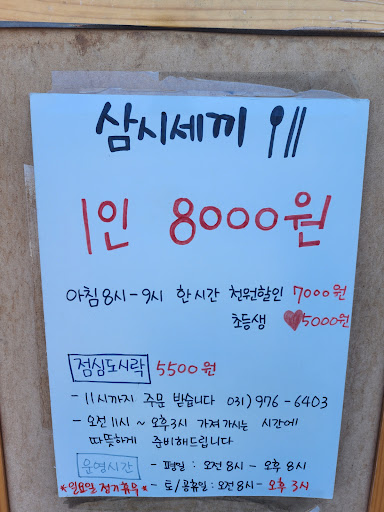 삼시세끼
1인 8000원
아침 8시-9시 한시간 천원할인 7000원
초등생 ♥5000원
점심도시락 5500원
- 11시까지 주문 받습니다 031) 976-6403
- 오전 11시 ~ 오후3시 가져가시는 시간에
따뜻하게 준비해드립니다
운영시간 - 평일 : 오전 8시 - 오후 8시
*일요일 정기휴무* - 토/공휴일 : 오전 8시 - 오후 3시